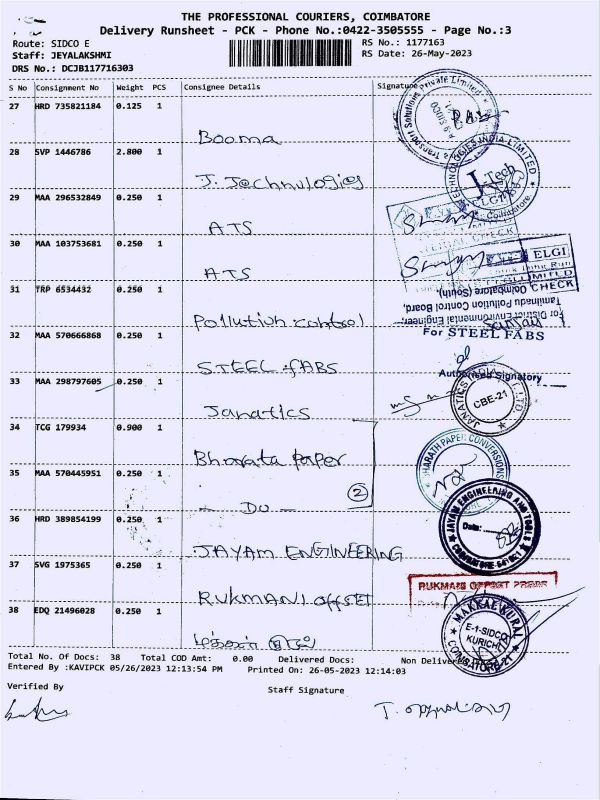 THE PROFESSIONAL COURIERS, COIMBATORE
Delivery Runsheet - PCK - Phone No.:0422-3505555 - Page No.:3
Route: SIDCO E
RS No.: 1177163
Staff: JEYALAKSHMI
RS Date: 26-May-2023
DRS No.: DCJB117716303
S No Consignment No Weight PCS Consignee Details Signature
27 HRD 735821184 0.125 1
Booma
28 SVP 1446786 2.800 1
J. Technologies
29 MAA 296532849 0.250 1
ATS
30 MAA 103753681 0.250 1
ATS
31 TRP 6534432 0.250 1
Pollution control
32 MAA 570666868 0.250 1
STEEL fABS
33 MAA 298797605 0.250 1
Janatics
34 TCG 179934 0.900 1
Bharata paper
35 MAA 570445951 0.250 1
- DO - 2
36 HRD 389854199 0.250 1
JAYAM ENGINEERING
37 SVG 1975365 0.250 1
RUKMANI offSET
38 EDQ 21496028 0.250 1
மக்கள் குரல்
Private Limited
J-Tech
Coimbatore
CHECK
ELGI
LIMITED
CHECK
For District Environmental Engineer,
Tamilnadu Pollution Control Board,
Coimbatore (South),
For STEEL FABS
Authorised Signatory
CBE-21
BHARATH PAPER CONVERSIONS
JAYAM ENGINEERING AND TOOLS
Date:
RUKMANI OFFSET PRESS
MAKKAL KURAL
E-1-SIDCO
KURICHI
COIMBATORE-21
Total No. Of Docs: 38 Total COD Amt: 0.00 Delivered Docs: Non Delivered
Entered By :KAVIPCK 05/26/2023 12:13:54 PM Printed On: 26-05-2023 12:14:03
Verified By
Staff Signature